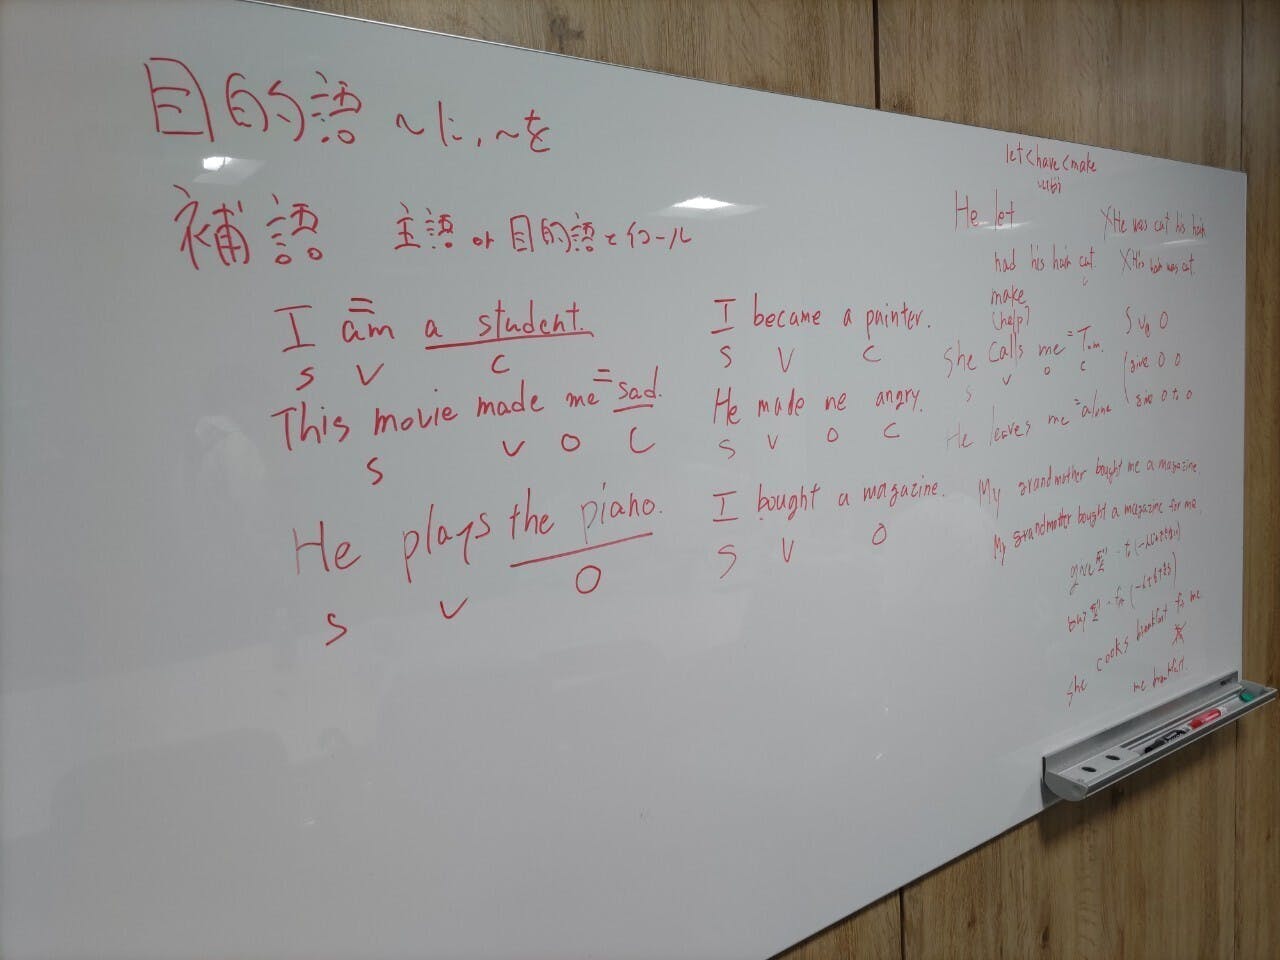 目的語 〜に、〜を
補語 主語 or 目的語とイコール
I am a student.
=
S V C
This movie made me = sad.
S V O C
He plays the piano.
S V O
I became a painter.
S V C
He made me angry.
S V O C
I bought a magazine.
S V O
let < have < make
He let
had his hair cut.
make
(help)
X He was cut his hair
X His hair was cut.
She calls me = Tom.
S V O C
He leaves me = alone
S V O
give O O
give O to O
My grandmother bought me a magazine.
My grandmother bought a magazine for me.
give型
buy型
She cooks breakfast for me
me breakfast.